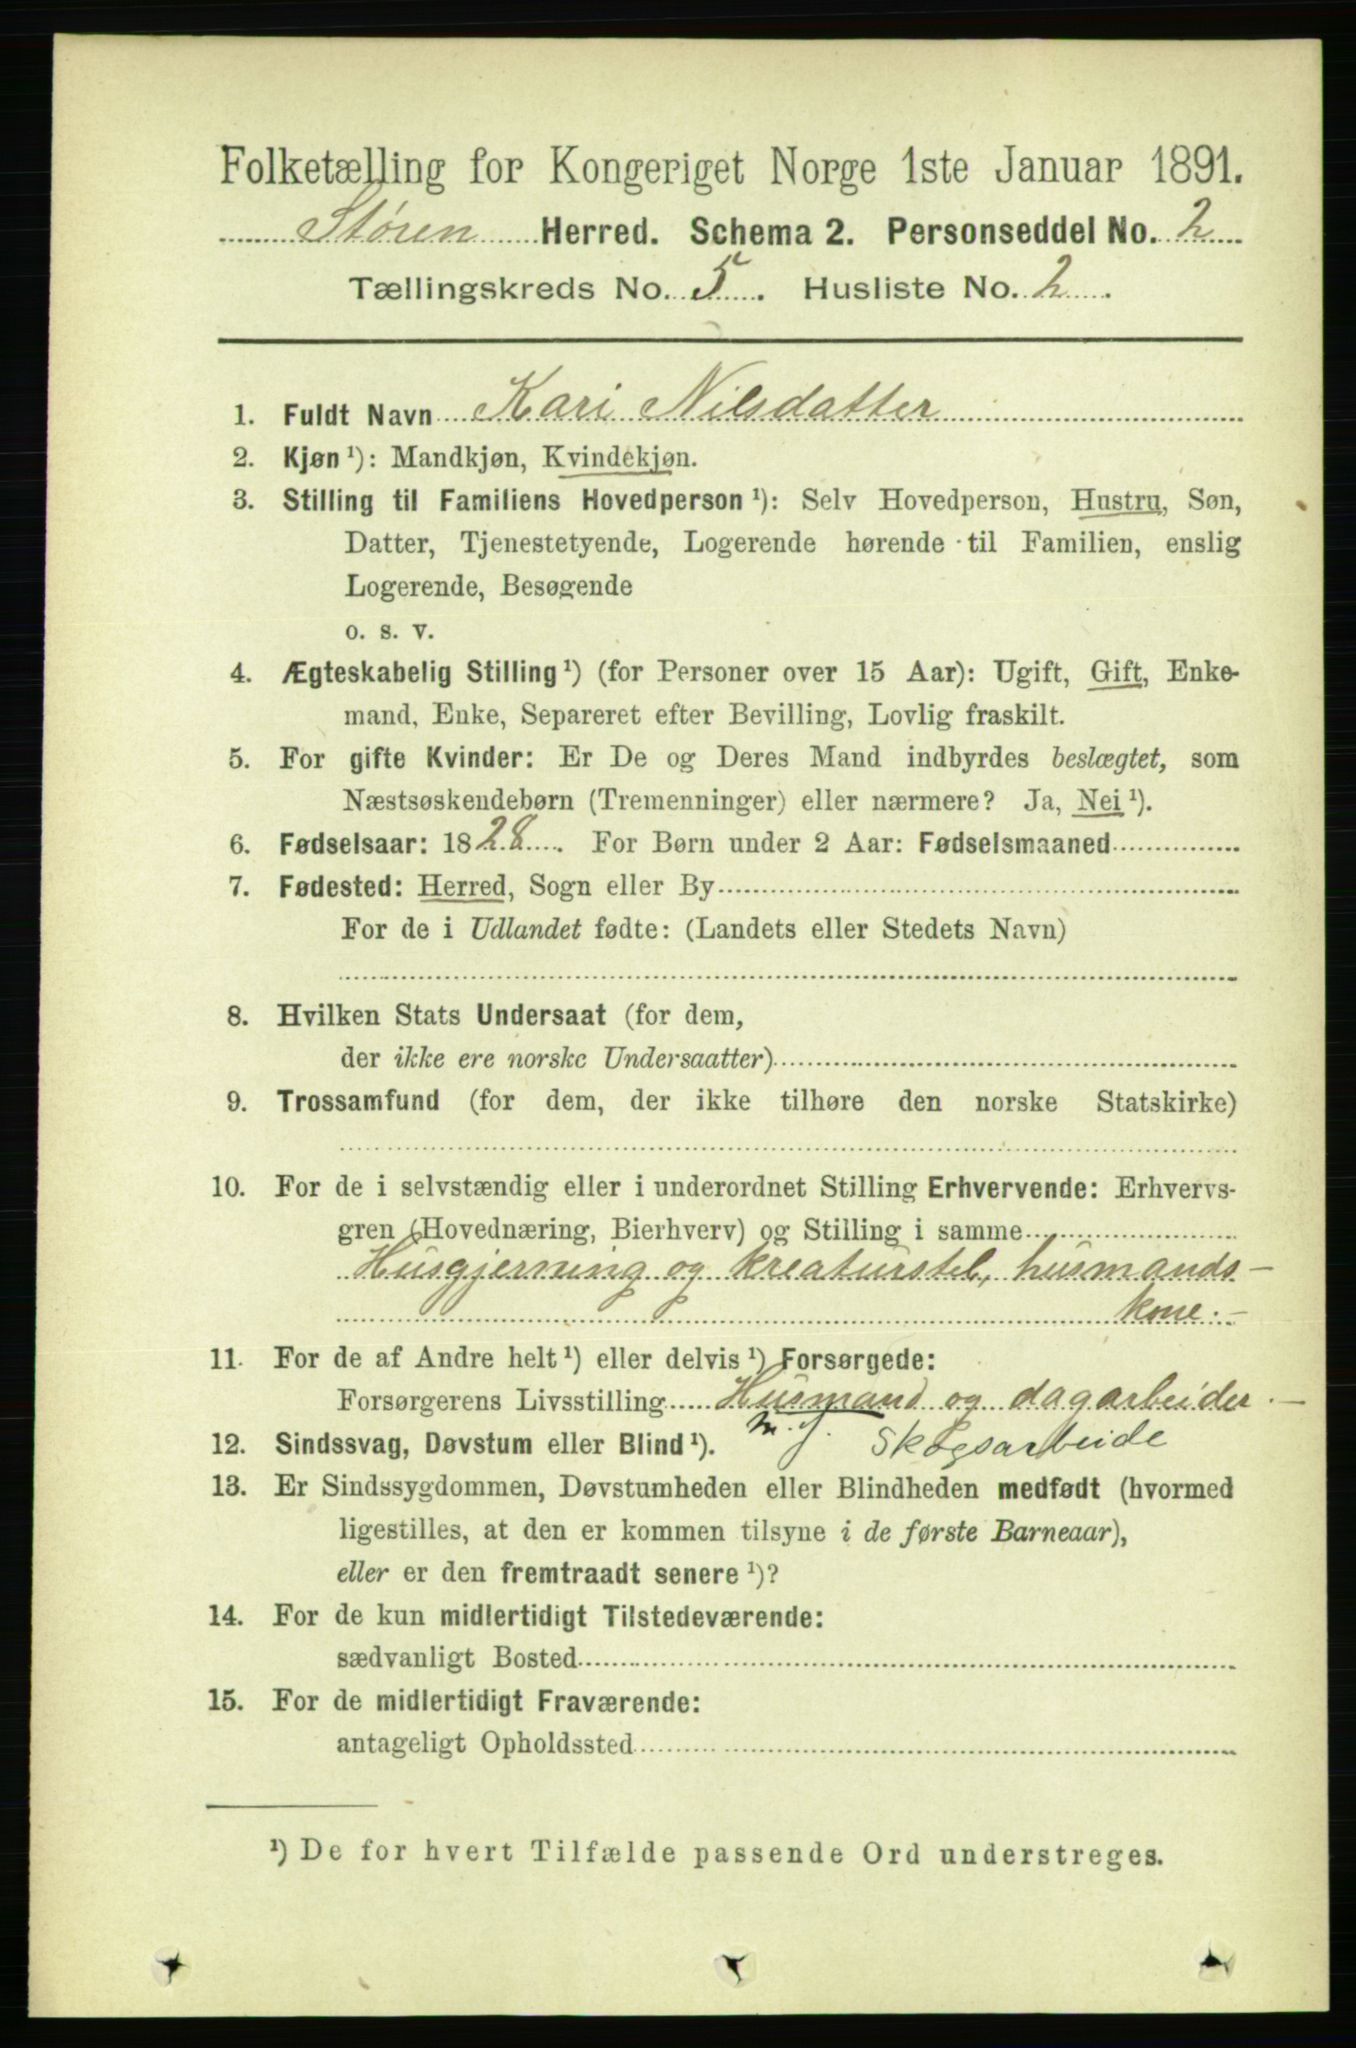 Folketælling for Kongeriget Norge 1ste Januar 1891.
Støren Herred. Schema 2. Personseddel No. 2
Tællingskreds No. 5. Husliste No. 2.
1. Fuldt Navn Kari Nilsdatter
2. Kjøn ¹): Mandkjøn, Kvindekjøn.
3. Stilling til Familiens Hovedperson ¹): Selv Hovedperson, Hustru, Søn,
Datter, Tjenestetyende, Logerende hørende til Familien, enslig
Logerende, Besøgende
o. s. v.
4. Ægteskabelig Stilling ¹) (for Personer over 15 Aar): Ugift, Gift, Enke-
mand, Enke, Separeret efter Bevilling, Lovlig fraskilt.
5. For gifte Kvinder: Er De og Deres Mand indbyrdes beslægtet, som
Næstsøskendebørn (Tremenninger) eller nærmere? Ja, Nei ¹).
6. Fødselsaar: 1828. For Børn under 2 Aar: Fødselsmaaned
7. Fødested: Herred, Sogn eller By
For de i Udlandet fødte: (Landets eller Stedets Navn)
8. Hvilken Stats Undersaat (for dem,
der ikke ere norske Undersaatter)
9. Trossamfund (for dem, der ikke tilhøre den norske Statskirke)
10. For de i selvstændig eller i underordnet Stilling Erhvervende: Erhvervs-
gren (Hovednæring, Bierhverv) og Stilling i samme
Husgjerning og kreaturstel, husmands-
kone.-
11. For de af Andre helt ¹) eller delvis ¹) Forsørgede:
Forsørgerens Livsstilling Husmand og dagarbeider.-
12. Sindssvag, Døvstum eller Blind ¹). m. j. Skogsarbeide
13. Er Sindssygdommen, Døvstumheden eller Blindheden medfødt (hvormed
ligestilles, at den er kommen tilsyne i de første Barneaar),
eller er den fremtraadt senere ¹)?
14. For de kun midlertidigt Tilstedeværende:
sædvanligt Bosted
15. For de midlertidigt Fraværende:
antageligt Opholdssted
¹) De for hvert Tilfælde passende Ord understreges.